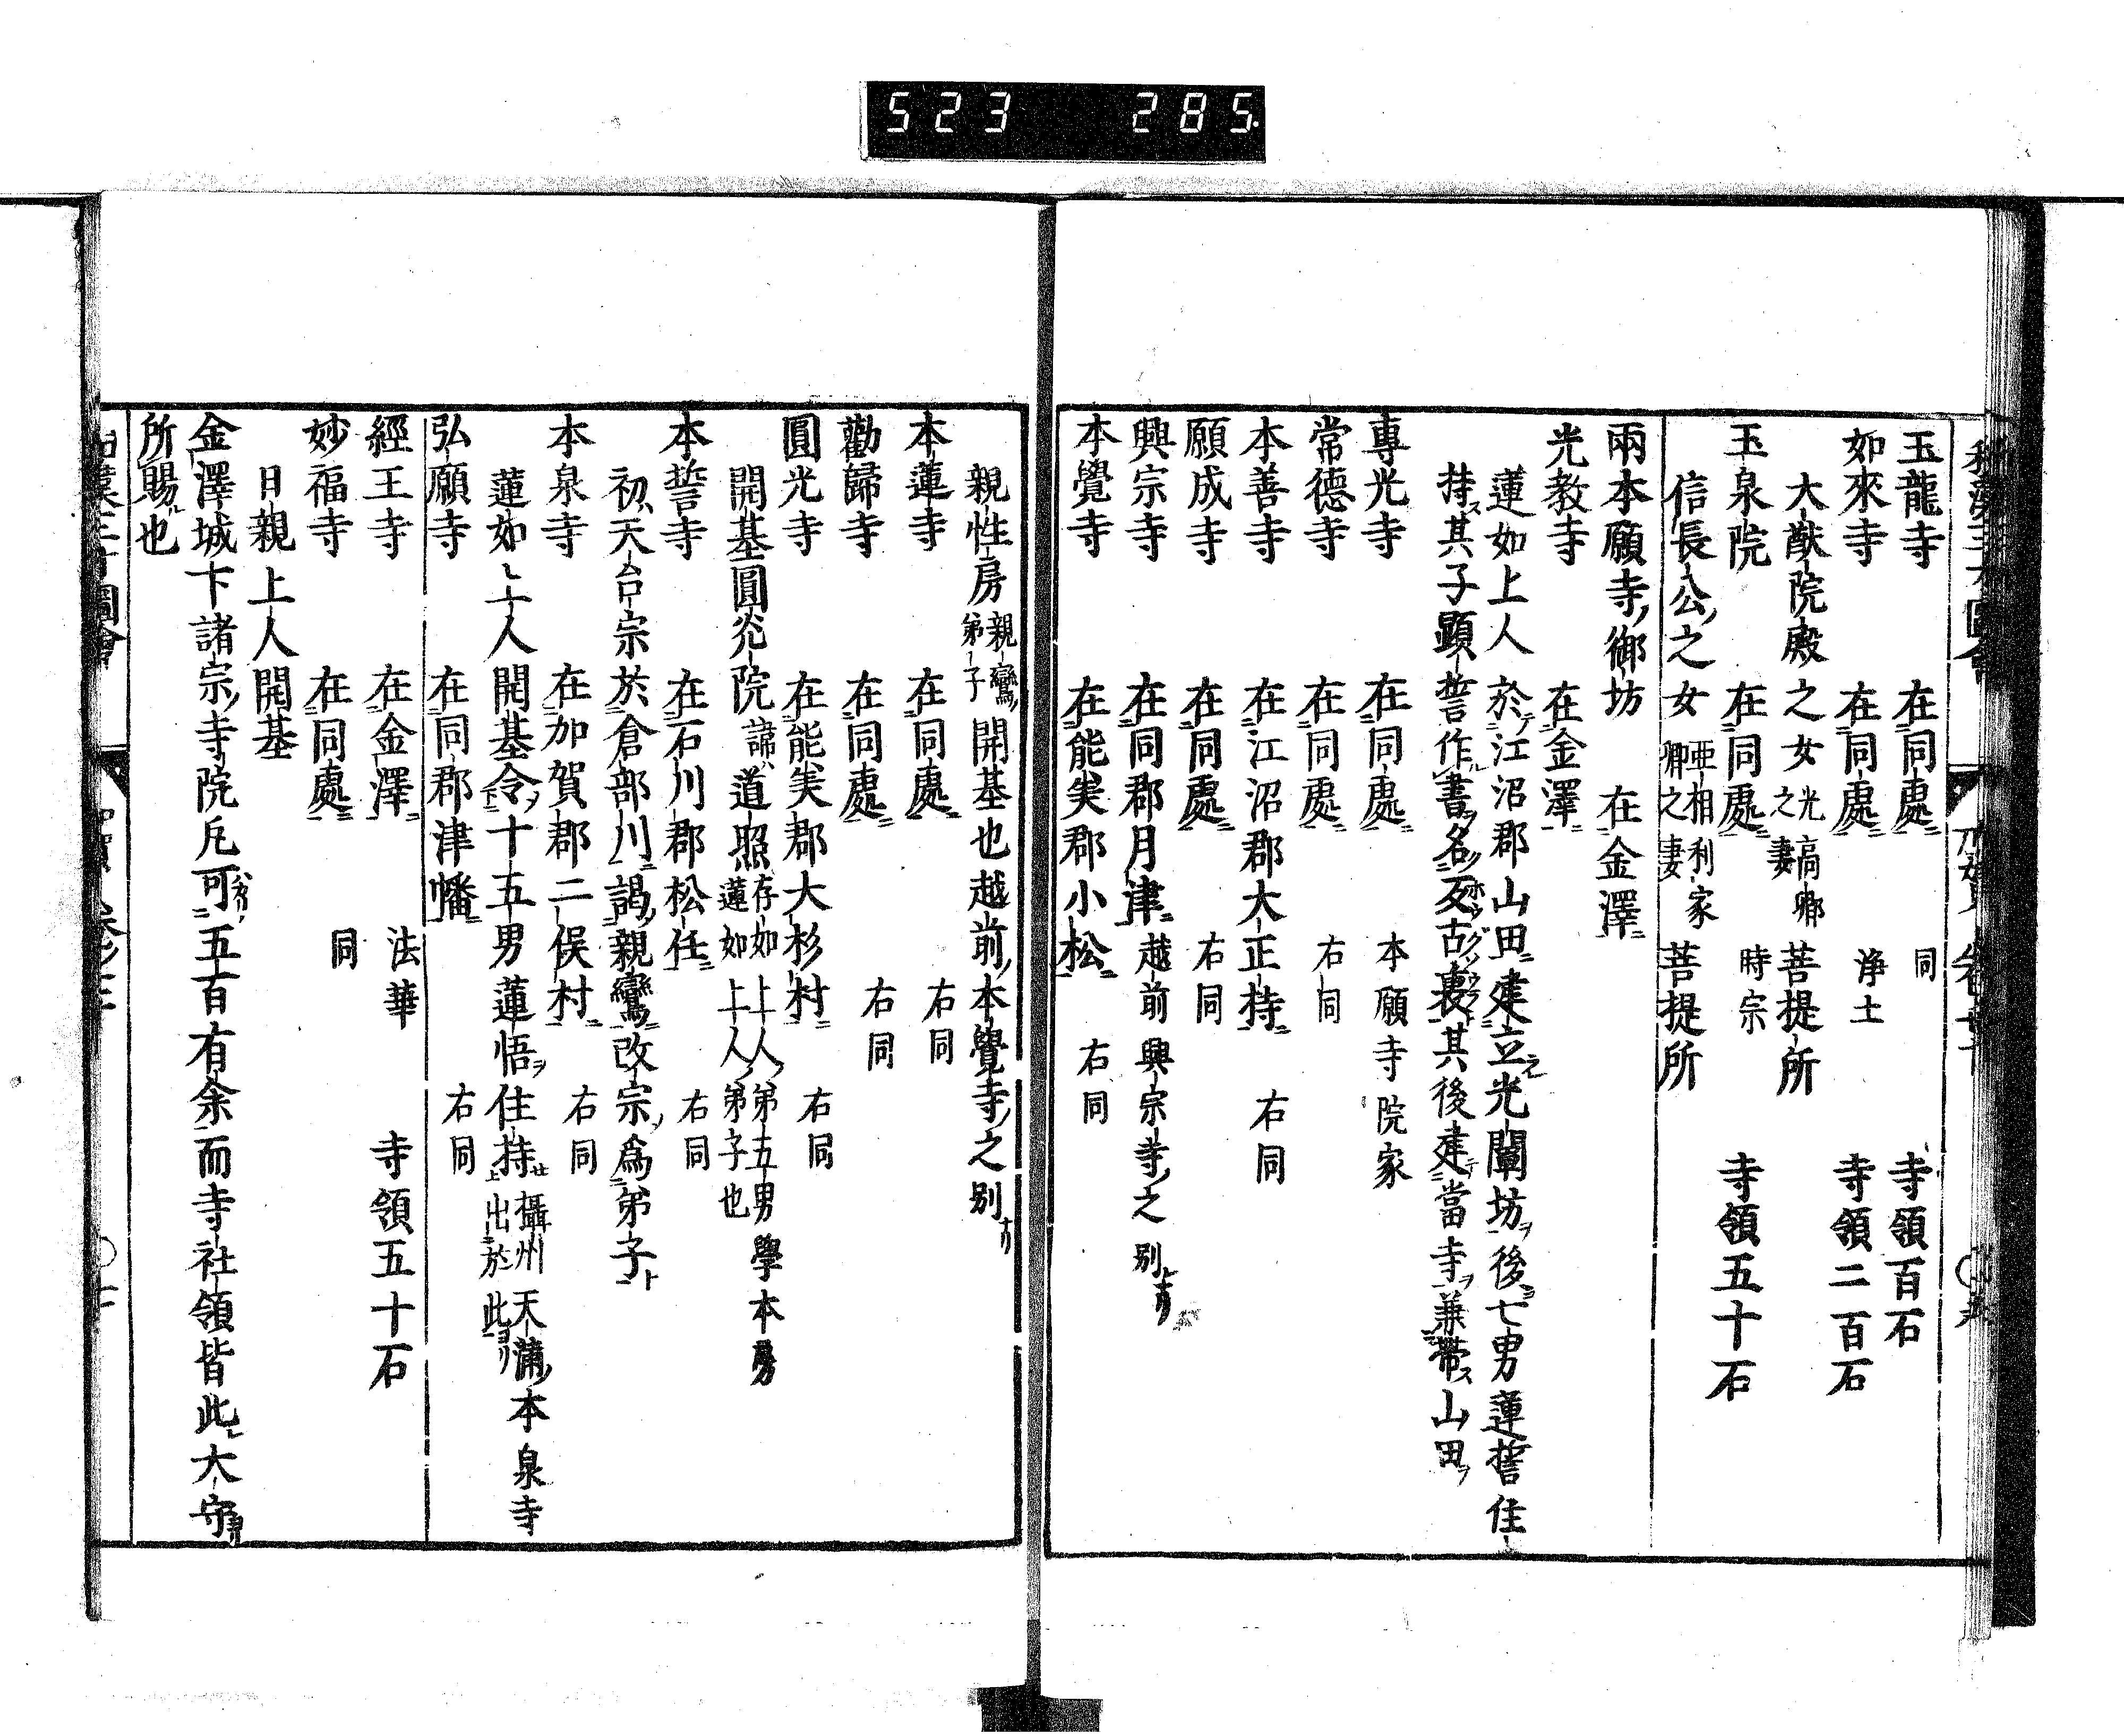 523 285
玉龍寺 在同處 同 寺領百石
如來寺 在同處 浄土 寺領二百石
大猷院殿之女光高卿之妻菩提所
玉泉院 在同處 時宗 寺領五十石
信長公之女亜相利家卿之妻菩提所
兩本願寺御坊 在金澤
光教寺 在金澤
蓮如上人於江沼郡山田建立光闡坊後七男蓮誓住
持其子顯誓作書名反古裏其後建當寺兼帶山田
專光寺 在同處 本願寺院家
常德寺 在同處 右同
本善寺 在江沼郡大正持 右同
願成寺 在同處 右同
興宗寺 在同郡月津 越前興宗寺之別
本覺寺 在能美郡小松 右同
親性房親鸞弟子開基也越前本覺寺之別
本蓮寺 在同處 右同
勸歸寺 在同處 右同
圓光寺 在能美郡大杉村 右同
開基圓光院諦道照存如上人弟五男學本房蓮如上人弟子也
本誓寺 在石川郡松任 右同
初天台宗於倉部川謁親鸞改宗爲弟子
本泉寺 在加賀郡二俣村 右同
蓮如上人開基令十五男蓮悟住持攝州天蒲本泉寺出於此
弘願寺 在同郡津幡 右同
經王寺 在金澤 法華 寺領五十石
妙福寺 在同處 同
日親上人開基
金澤城下諸宗寺院凡可五百有余而寺社領皆此大守
所賜也